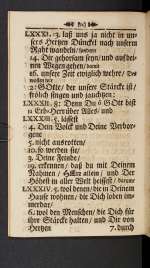 LXXXI. 13. laß uns ja nicht in un-
sers Hertzen Dünckel nach unserm
Raht wandeln/
14. Dir gehorsam seyn/ und auf dei-
nen Wegen gehen/
16. unser Zeit ewiglich wehr/ Des
2: Gotte/ der unser Stärcke ist/
frölich singen und jauchtzen:
LXXXII. 8: Denn Du ô GOtt bist
Erb-Herr über Alles/ und
LXXXIII. 5. lässest
4. Dein Volck und Deine Verbor-
gene
5. nicht ausrotten/
10. so werden sie/
3. Deine Feinde/
19. erkennen/ daß du mit Deinem
Nahmen/ HErr allein/ und Der
Höhest in aller Welt heissest/
LXXXIV. 5. wol denen/ die in Deinem
Hause wohnen/ die Dich loben im-
merdar/
6. wol den Menschen/ die Dich für
ihre Stärcke halten/ und Dir von
Hertzen
7. durch